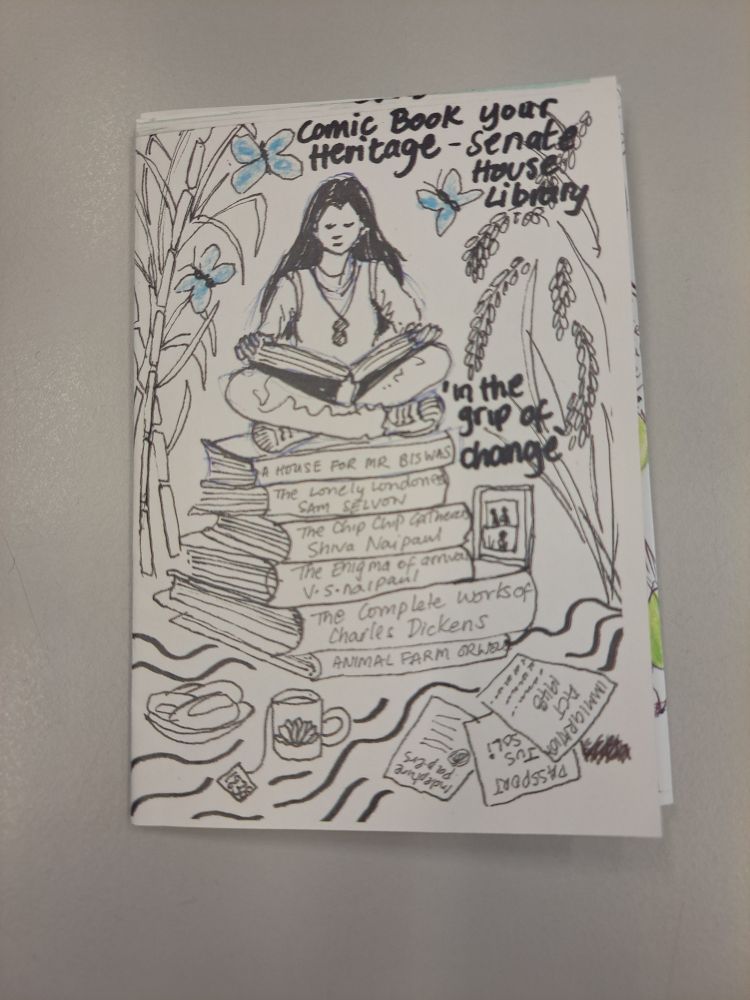 Comic Book your
Heritage - Senate
House
Library
'in the
grip of
change'
A HOUSE FOR MR. BISWAS
The Lonely Londone
SAM SELVON
The Chip Chip Gathere
Shiva Naipaul
The Enigma of arrival
V.S. naipaul
The Complete Works of
Charles Dickens
ANIMAL FARM ORWELL
IMMIGRATION
ACT
1948
Indenture
papers
PASSPORT
JUS
SOLI